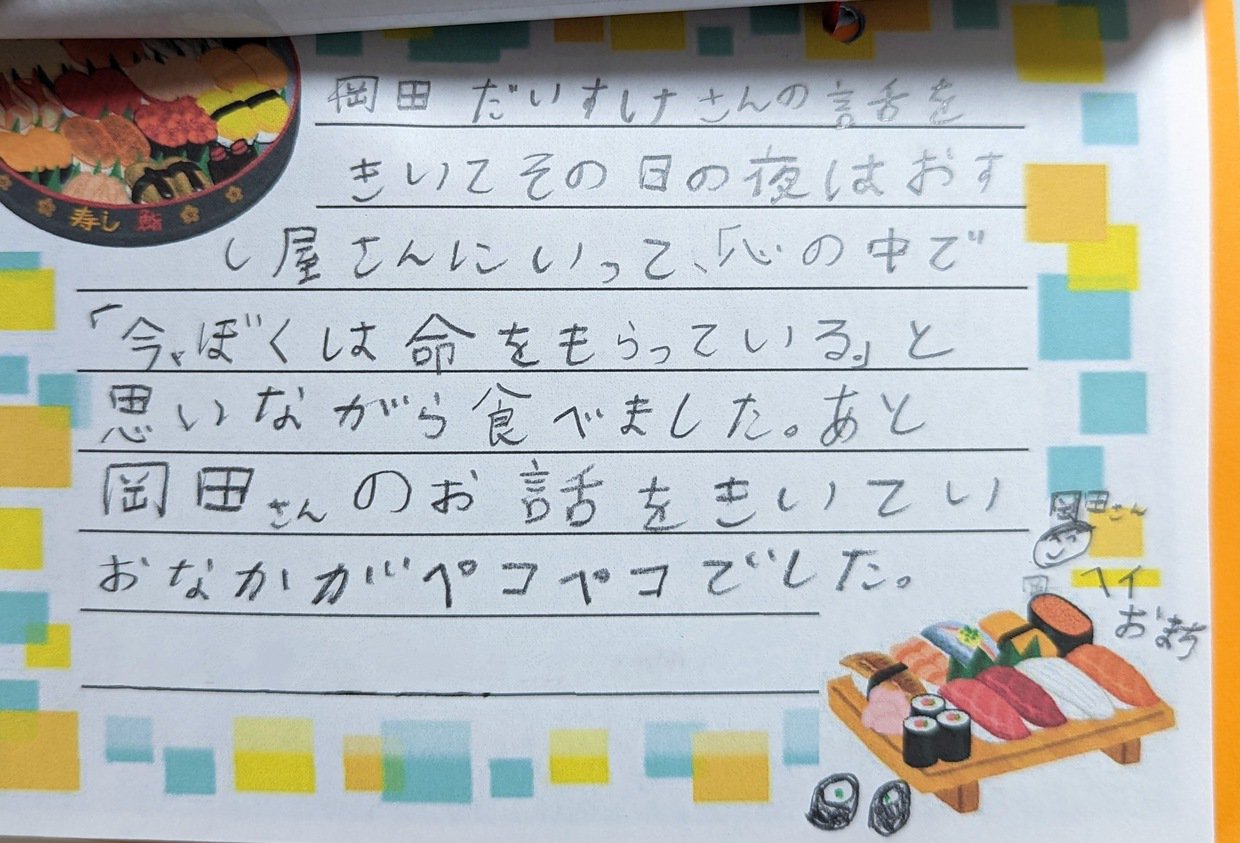 寿し 鮨
岡田 だいすけさんの話を
きいてその日の夜はおす
し屋さんにいって、「心の中で
「今、ぼくは命をもらっている。」と
思いながら食べました。あと
岡田さんのお話をきいてい
おなかがペコペコでした。
岡田さん
ヘイ
おまち